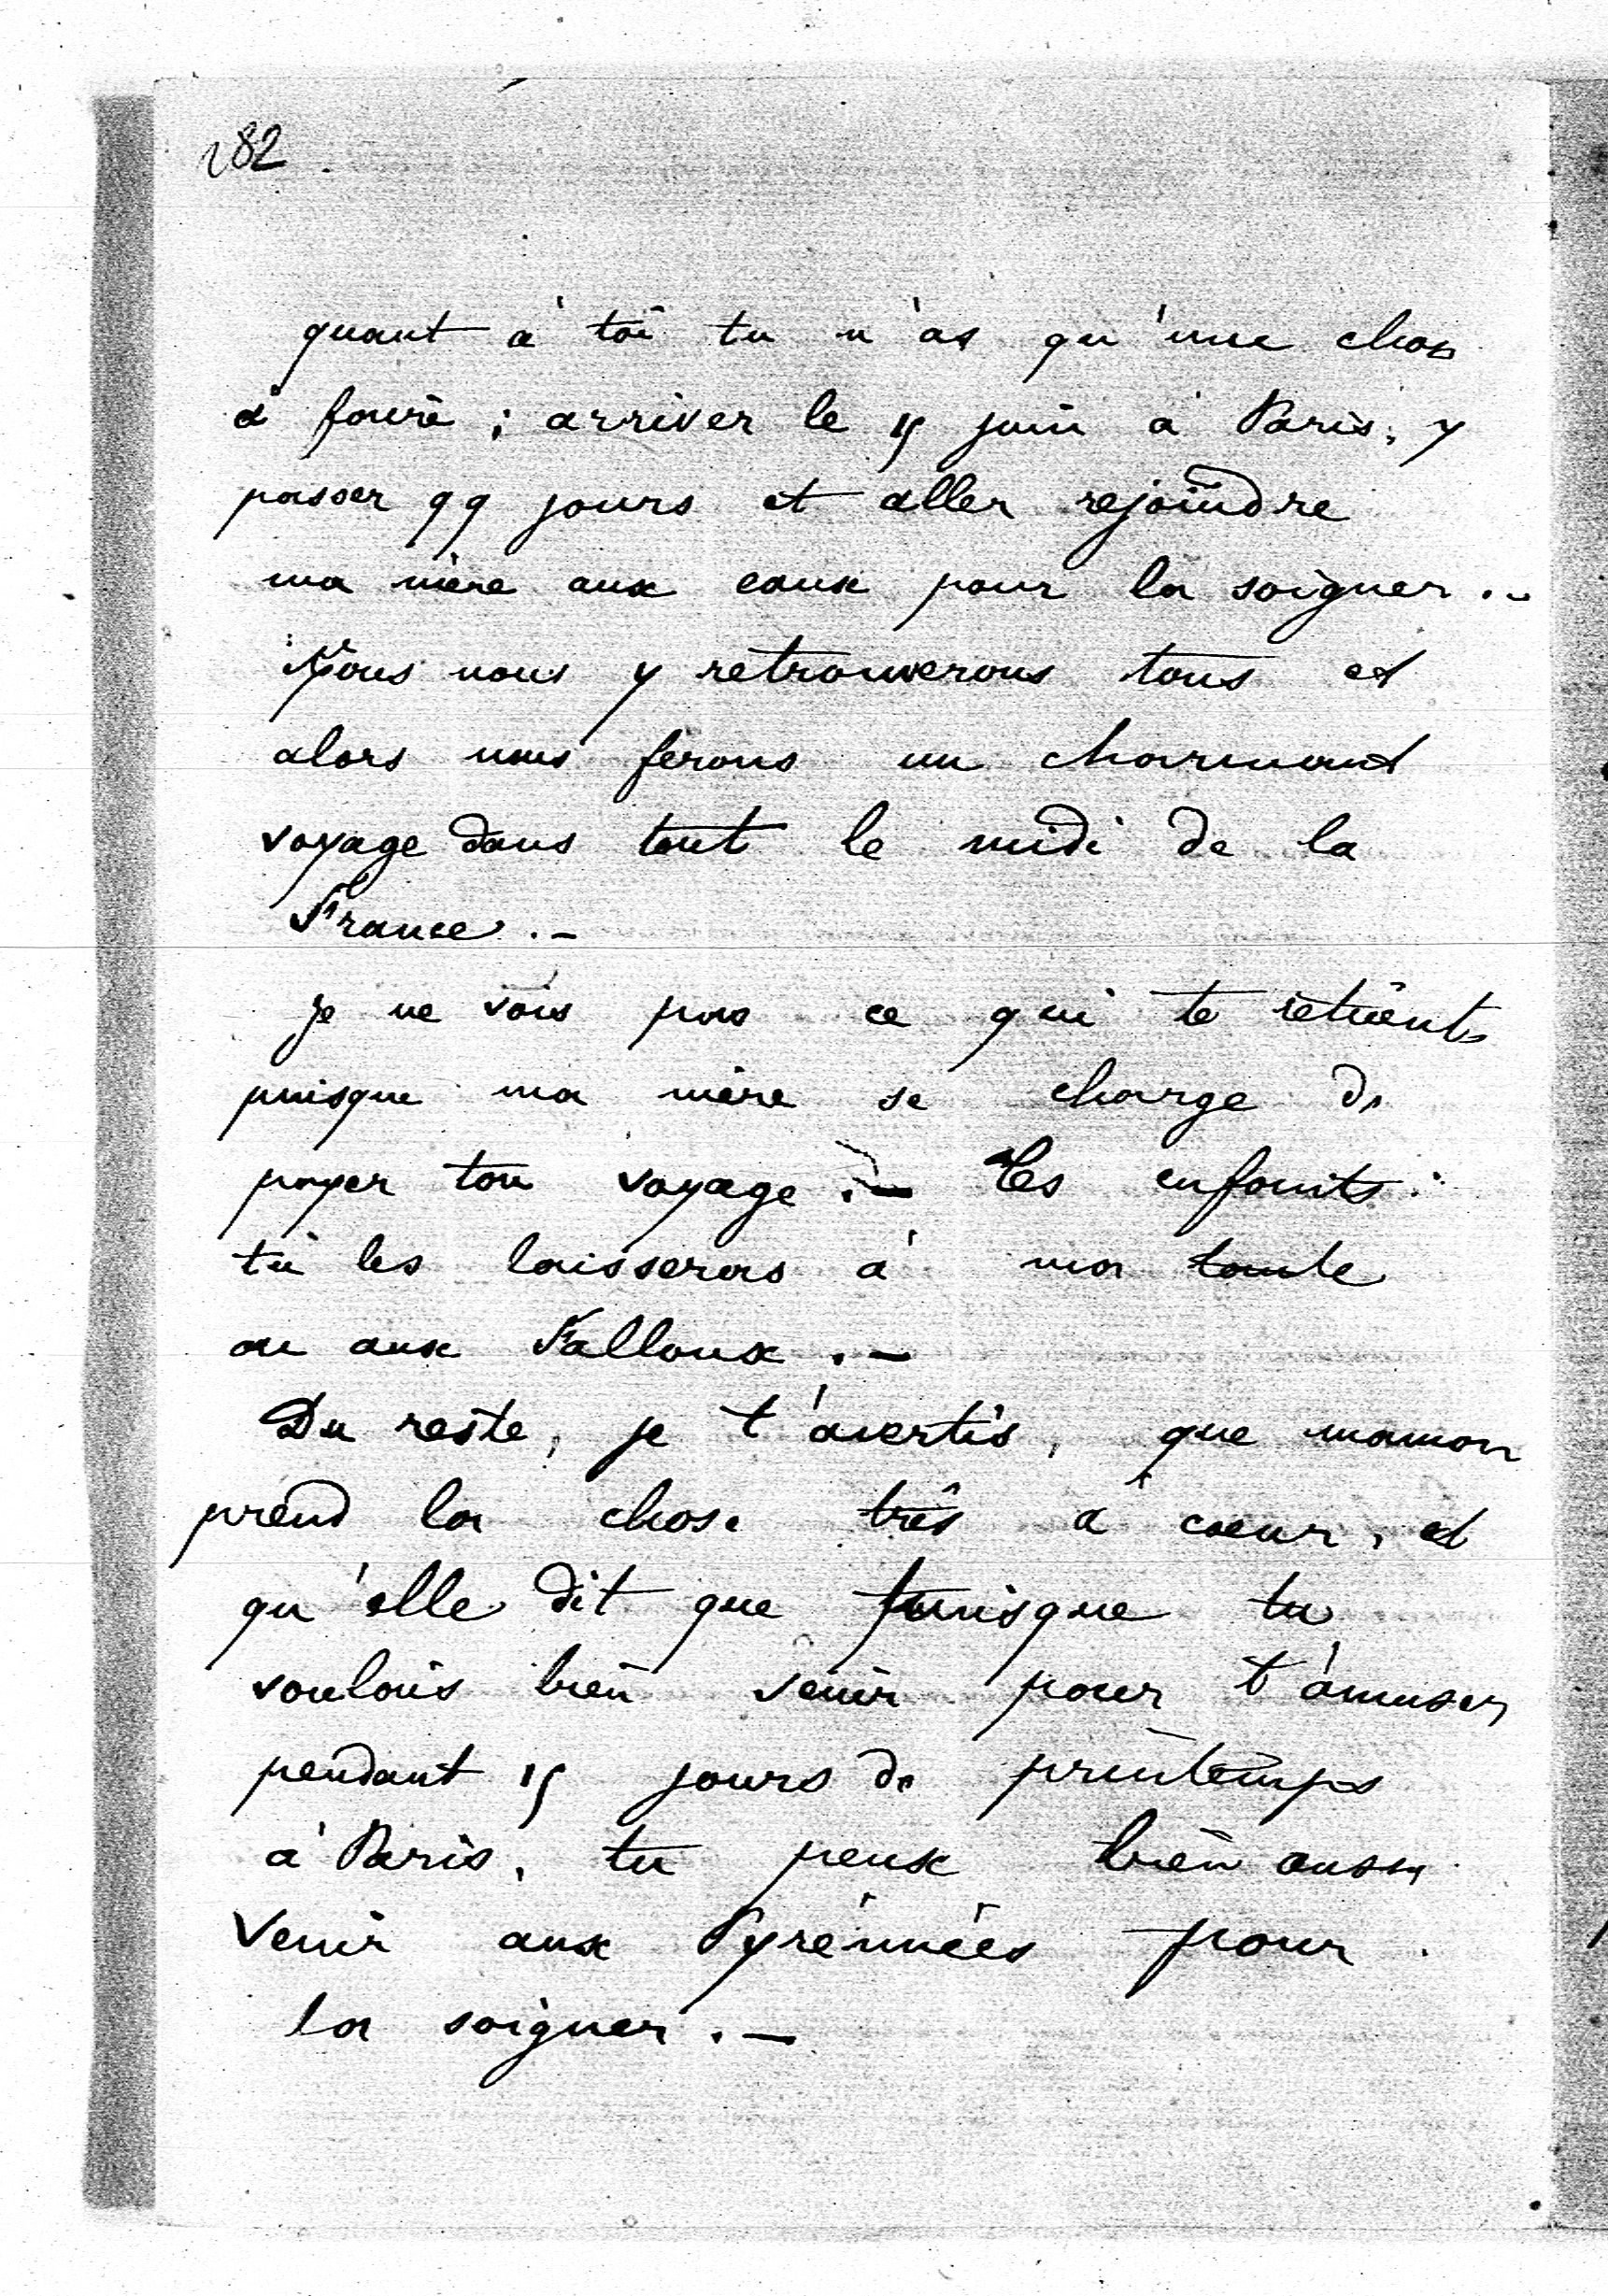 282
quant à toi tu n'as qu'une chose
à faire ; arriver le 15 juin à Paris, y
passer qq jours et aller rejoindre
ma mère aux eaux pour la soigner .-
Nous nous y retrouverons tous et
alors nous ferons un charmant
voyage dans tout le midi de la
France .-
Je ne vois pas ce qui te retient,
puisque ma mère se charge de
payer ton voyage .- Tes enfants :
tu les laisseras à ma tante
ou aux Falloux .-
Du reste, je t'avertis, que maman
prend la chose très à cœur, et
qu'elle dit que puisque tu
voulais bien venir pour t'amuser
pendant 15 jours de printemps
à Paris, tu peux bien aussi
venir aux Pyrénnées pour
la soigner .-